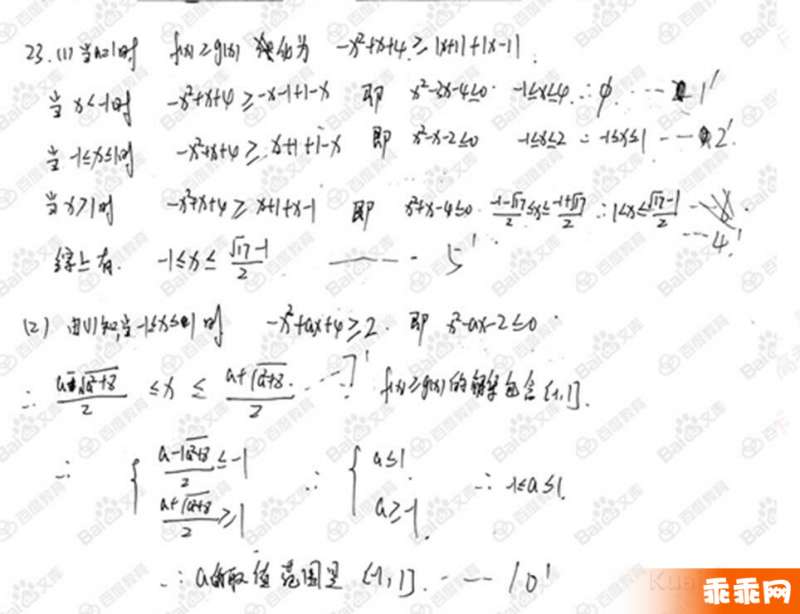 23.(1)当a=1时 f(x)≥g(x) 化为 -x²+x+4≥|x+1|+|x-1|
当x<-1时 -x²+x+4≥-x-1+1-x 即 x²-3x-4≤0 -1≤x≤4 ∴φ ---1'
当-1≤x≤1时 -x²+x+4≥x+1+1-x 即 x²-x-2≤0 -1≤x≤2 ∴-1≤x≤1 ---2'
当x>1时 -x²+x+4≥x+1+x-1 即 x²+x-4≤0 (-1-√17)/2≤x≤(-1+√17)/2 ∴1<x≤(√17-1)/2
---4'
综上有 -1≤x≤(√17-1)/2 ---5'
(2) 由(1)知,当-1≤x≤1时 -x²+ax+4≥2 即 x²-ax-2≤0
∴ (a-√(a²+8))/2≤x≤(a+√(a²+8))/2 ---7' f(x)≥g(x)的解集包含[-1,1].
∴ { (a-√(a²+8))/2≤-1 ∴ { a≤1 ∴-1≤a≤1
(a+√(a²+8))/2≥1 a≥-1
∴a的取值范围是[-1,1]. ---10'
乖乖网
Baidu文库
百度教育